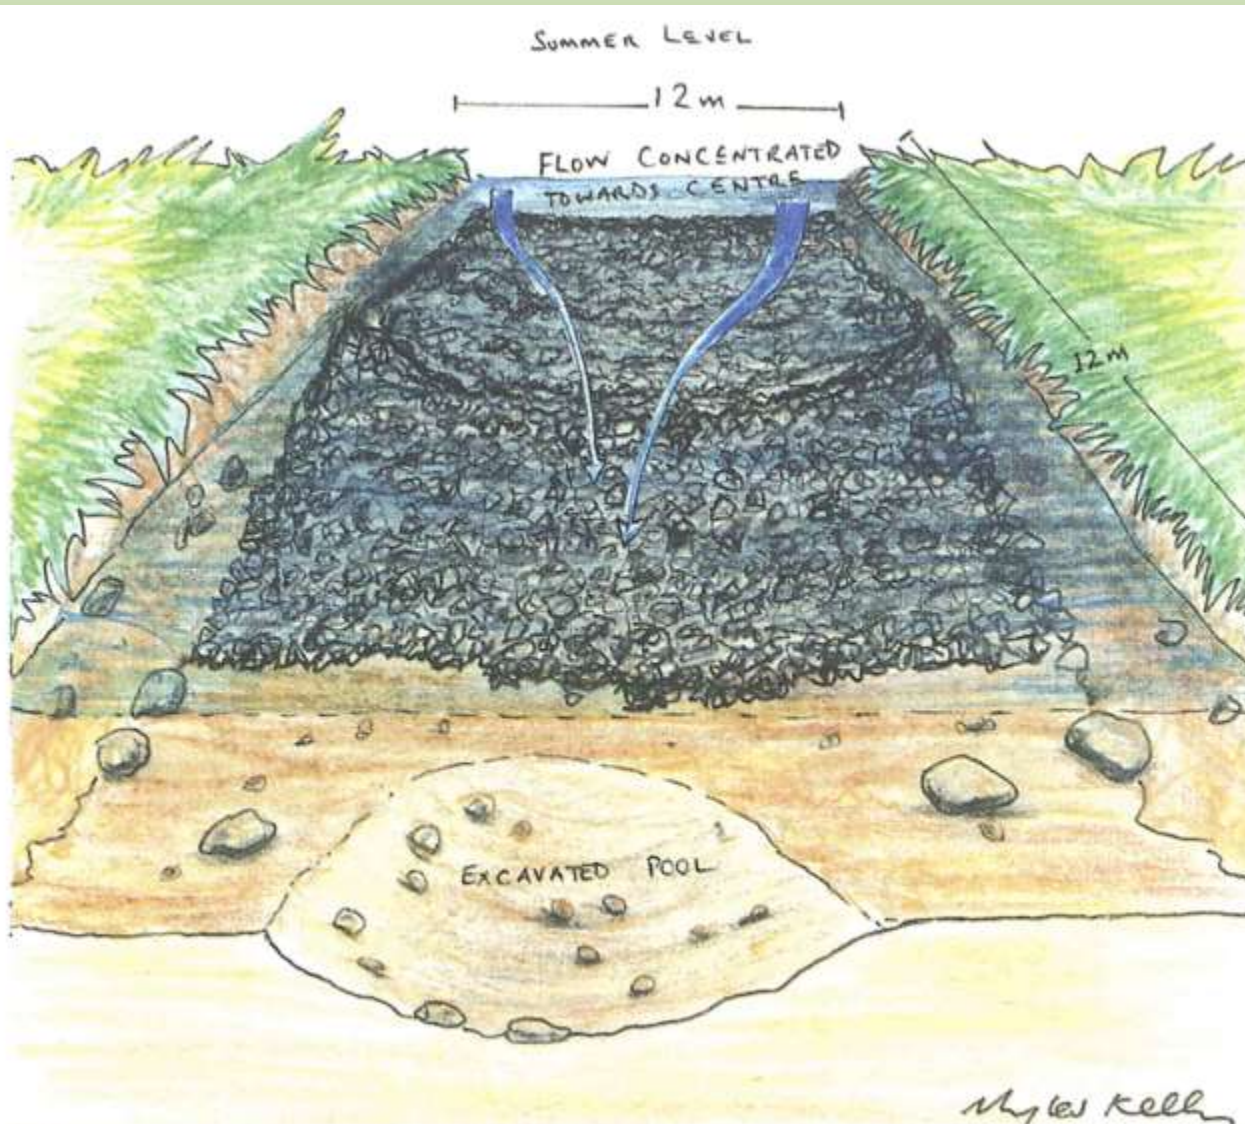 SUMMER LEVEL
12m
FLOW CONCENTRATED
TOWARDS CENTRE
12m
EXCAVATED POOL
Myles Kelly